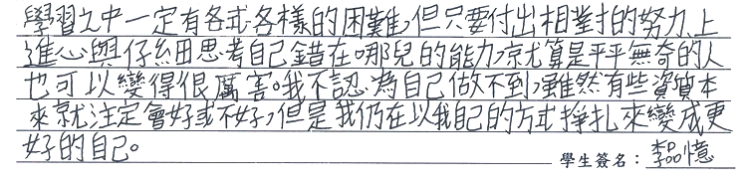 學習之中一定有各式各樣的困難,但只要付出相對的努力、上
進心與仔細思考自己錯在哪兒的能力,就算是平平無奇的人
也可以變得很厲害。我不認為自己做不到,雖然有些資質本
來就注定會好或不好,但是我仍在以我自己的方式掙扎來變成更
好的自己。
學生簽名:李品憶